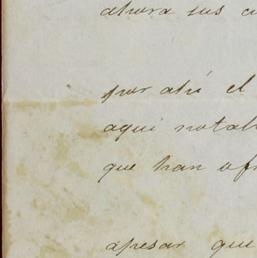 ahora sus
por ahí el
aqui notab
que han
apesar que